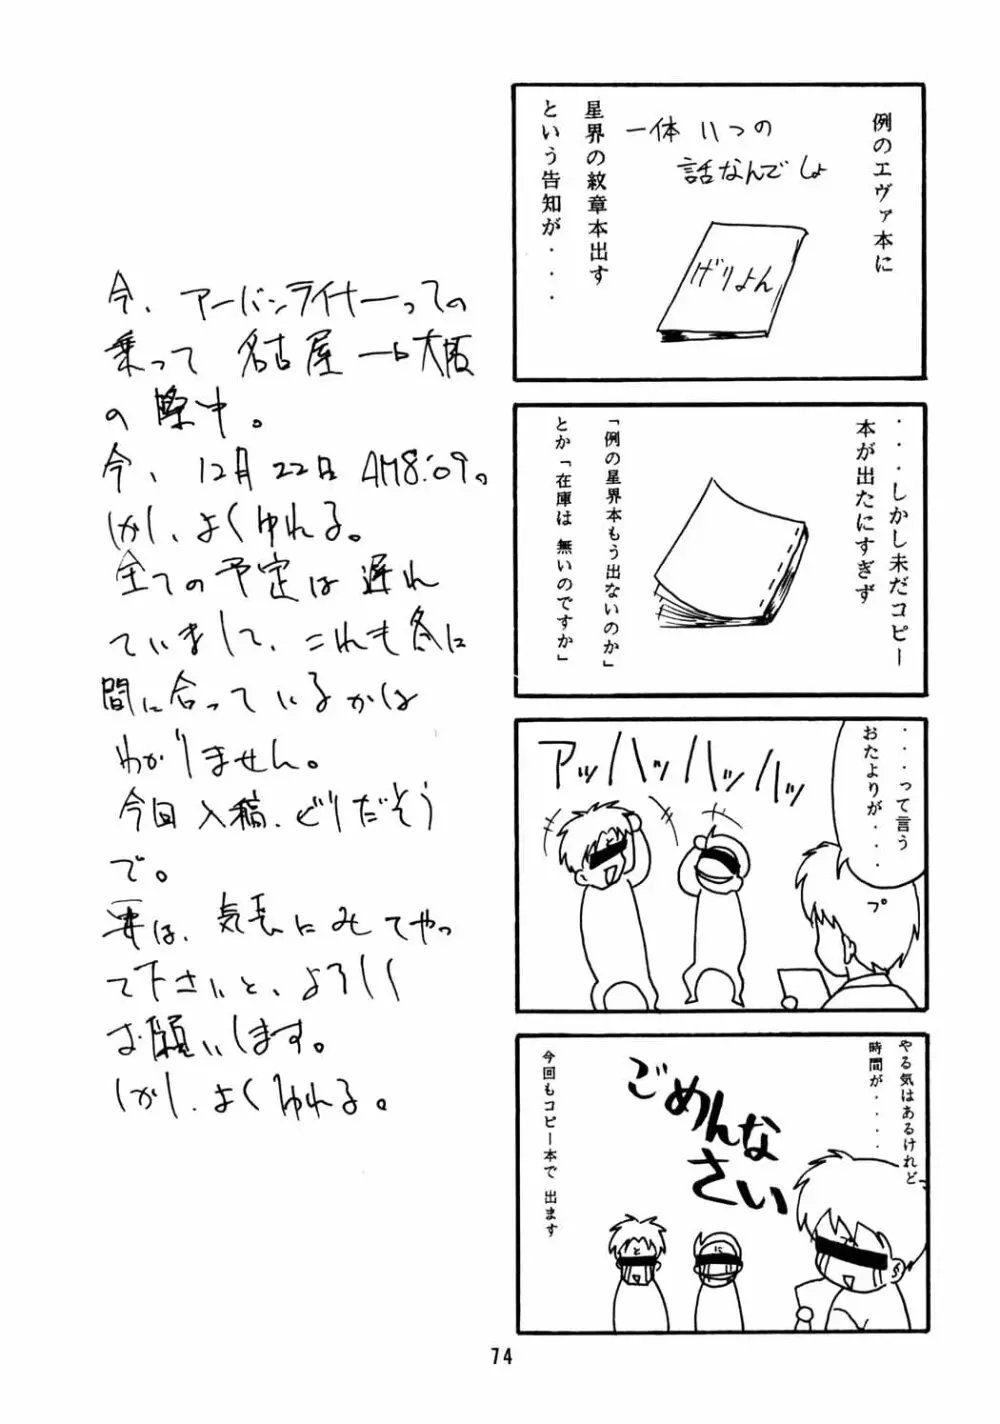 例のエヴァ本に
一体いつの
話なんでしょ
星界の紋章本出す
という告知が・・・
げりよん
・・・しかし未だコピー
本が出たにすぎず
「例の星界本もう出ないのか」
とか「在庫は無いのですか」
・・・って言う
おたよりが・・・
プ
アッハッハッハッ
やる気はあるけれど
時間が・・・・
ごめんな
さい
と
に
プ
今回もコピー本で出ます
今、アーバンライナーっての
乗って名古屋→大阪
の際中。
今、12月22日AM8:09。
しかし、よくゆれる。
全ての予定は遅れ
ていまして、これも冬に
間に合っているかは
わかりません。
今回入稿、どりだそう
で。
要は、気長にみてやっ
て下さいと、よろしく
お願いします。
しかし、よくゆれる。
74